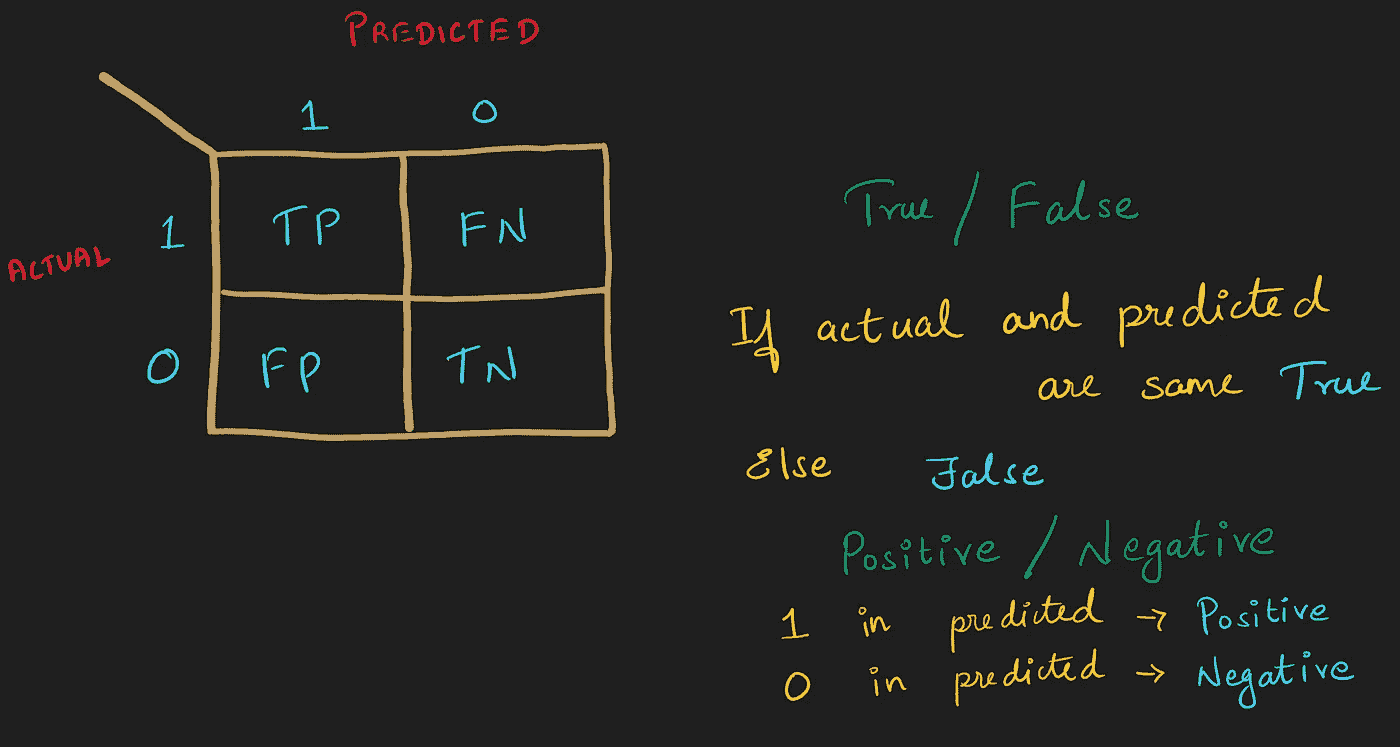 PREDICTED
1 0
ACTUAL 1 TP FN
0 FP TN
True / False
If actual and predicted
are same True
Else False
Positive / Negative
1 in predicted → Positive
0 in predicted → Negative